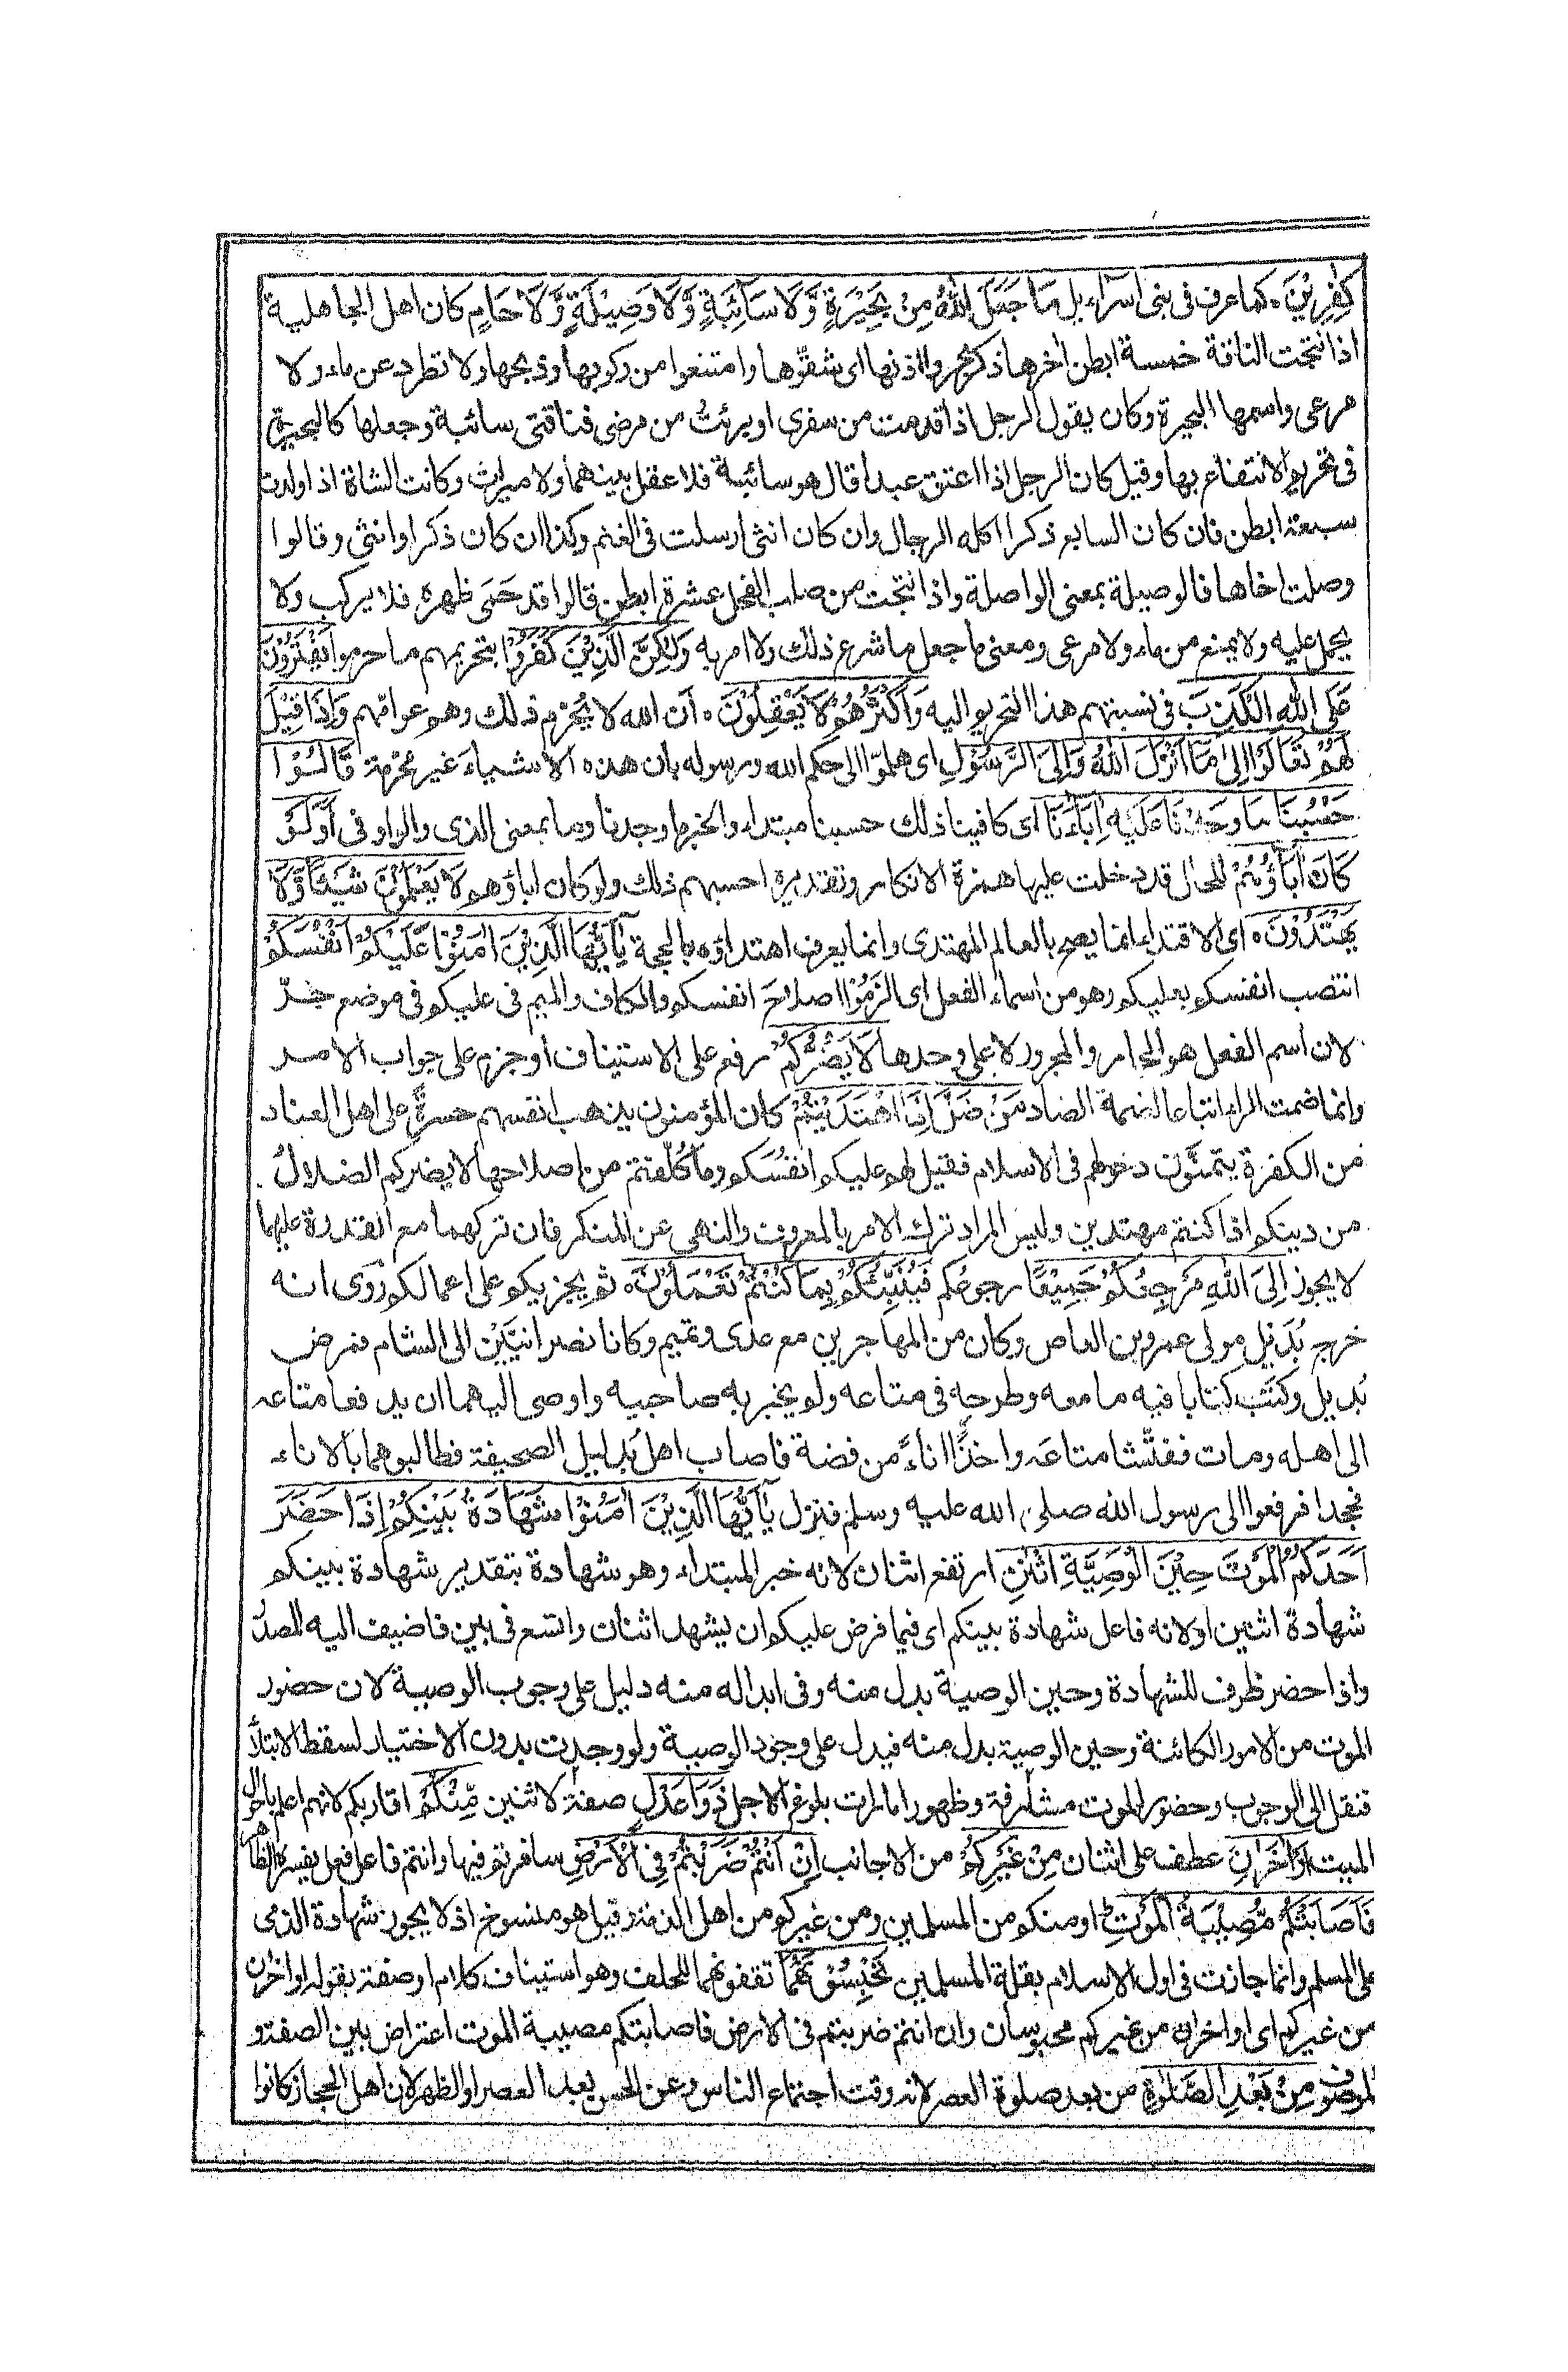 كٰفِرِيْنَ ۰ كما عرف فى بنى اسراء بل مَا جَعَلَ اللّٰهُ مِنْ بَحِيْرَةٍ وَّلَا سَآئِبَةٍ وَّلَا وَصِيْلَةٍ وَّلَا حَامٍ كان اهل الجاهلية
اذا نتجت الناقة خمسة ابطن اخرها ذكر بحروا اذنها اى شقوها وامتنعوا من ركوبها وذبحها ولا تطرد عن ماء ولا
مرعى واسمها البحيرة وكان يقول الرجل اذا قدمت من سفرى او برئتُ من مرضى فناقتى سائبة وجعلها كالبحيرة
فى تحريم الانتفاع بها وقيل كان الرجل اذا اعتق عبدا قال هو سائبة فلا عقل بينهما ولا ميراث وكانت الشاة اذا ولدت
سبعة ابطن فان كان السابع ذكرا اكله الرجال وان كان انثى ارسلت فى الغنم وكذا ان كان ذكرا وانثى وقالوا
وصلت اخاها فالوصيلة بمعنى الواصلة واذا نتجت من صلب الفحل عشرة ابطن قالوا قد حَمَى ظهره فلا يركب ولا
يحمل عليه ولا يمنع من ماء ولا مرعى ومعنى ما جعل ما شرع ذلك ولا امر به وَلٰكِنَّ الَّذِيْنَ كَفَرُوْا بتحريمهم ما حرموا يَفْتَرُوْنَ
عَلَى اللّٰهِ الْكَذِبَ فى نسبتهم هذا التحريم اليه وَاَكْثَرُهُمْ لَا يَعْقِلُوْنَ ۰ ان الله لا يُحرّم ذلك وهم عوامّهم وَاِذَا قِيْلَ
لَهُمْ تَعَالَوْا اِلٰى مَا اَنْزَلَ اللّٰهُ وَاِلَى الرَّسُوْلِ اى هلمّوا الى حكم الله ورسوله بان هذه الاشياءَ غير محرّمة قَالُوْا
حَسْبُنَا مَا وَجَدْنَا عَلَيْهِ اٰبَآءَنَا اى كافينا ذلك حسبنا مبتداء والخبر ما وجدنا وما بمعنى الذى والواو فى اَوَلَوْ
كَانَ اٰبَآؤُهُمْ للحال قد دخلت عليها همزة الانكار وتقديره احسبهم ذلك ولو كان اباؤهم لَا يَعْلَمُوْنَ شَيْئًا وَّلَا
يَهْتَدُوْنَ ۰ اى الاقتداء انما يصح بالعالم المهتدى وانما يعرف اهتداؤه بالحجة يٰٓاَيُّهَا الَّذِيْنَ اٰمَنُوْا عَلَيْكُمْ اَنْفُسَكُمْ
انتصب انفسكم بعليكم وهو من اسماء الفعل اى الزَمُوْا اصلاحَ انفسكم والكاف والميم فى عليكم فى موضع جرّ
لان اسم الفعل هو الجار والمجرور لا على وحدها لَا يَضُرُّكُمْ رفع على الاستيناف او جزم على جواب الامر
وانما ضمت الراء اتباعا لضمة الضاد مَنْ ضَلَّ اِذَا اهْتَدَيْتُمْ كان المؤمنون يذهب انفسهم حسرةً على اهل العناد
من الكفرة يتمنّون دخولهم فى الاسلام فقيل لهم عليكم انفُسَكم وما كُلّفتم من اصلاحها لا يضركم الضلالُ
من دينكم اذا كنتم مهتدين وليس المراد ترك الامر بالمعروف والنهى عن المنكر فان تركهما مع القدرة عليهما
لا يجوز اِلَى اللّٰهِ مَرْجِعُكُمْ جَمِيْعًا رجوعكم فَيُنَبِّئُكُمْ بِمَا كُنْتُمْ تَعْمَلُوْنَ ۰ ثم يجزيكم على اعمالكم رُوى انه
خرج بُدَيل مولى عمرو بن العاص وكان من المهاجرين مع عدى وتميم وكانا نصرانيَّيْن الى الشام فمرض
بديل وكَتَبَ كتابا فيه ما معه وطرحه فى متاعه ولم يخبر به صاحبيه واوصى اليهما ان يدفعا متاعه
الى اهله ومات ففتّشا متاعَه واخذا اناءً من فضة فاصاب اهل بديل الصحيفة فطالبوهما بالاناء
فجحدا فرفعوا الى رسول الله صلى الله عليه وسلم فنزل يٰٓاَيُّهَا الَّذِيْنَ اٰمَنُوْا شَهَادَةُ بَيْنِكُمْ اِذَا حَضَرَ
اَحَدَكُمُ الْمَوْتُ حِيْنَ الْوَصِيَّةِ اثْنٰنِ ارتفع اثنان لانه خبر المبتداء وهو شهادة بتقدير شهادة بينكم
شهادة اثنين او لانه فاعل شهادة بينكم اى فيما فرض عليكم ان يشهد اثنان واتسع فى بين فاضيف اليه المصدر
واذا حضر ظرف للشهادة وحين الوصية بدل منه وفى ابداله منه دليل على وجوب الوصية لان حضور
الموت من الامور الكائنة وحين الوصية بدل منه فيدل على وجود الوصية ولو وجدت بدون الاختيار لسقط الابتلاء
فنقل الى الوجوب وحضور الموت مشارفة وظهور امارات بلوغ الاجل ذَوَا عَدْلٍ صفة لاثنين مِّنْكُمْ اقاربكم لانهم اعلم باحوال
الميت اَوْ اٰخَرٰنِ عطف على اثنان مِنْ غَيْرِكُمْ من الاجانب اِنْ اَنْتُمْ ضَرَبْتُمْ فِى الْاَرْضِ سافرتم فيها وانتم فاعل فعل يفسره الظاهر
فَاَصَابَتْكُمْ مُّصِيْبَةُ الْمَوْتِ او منكم من المسلمين ومن غيركم من اهل الذمة وقيل هو منسوخ اذ لا يجوز شهادة الذمى
على المسلم وانما جازت فى اول الاسلام بقلة المسلمين تَحْبِسُوْنَهُمَا تقفونهما للحلف وهو استيناف كلام او صفة بقوله او اخران
من غيركم اى او اخران من غيركم محبوسان وان انتم ضربتم فى الارض فاصابتكم مصيبة الموت اعتراض بين الصفة و
الموصوف مِنْ بَعْدِ الصَّلٰوةِ من بعد صلوة العصر لانه وقت اجتماع الناس وعن الحسن بعد العصر او الظهر لان اهل الحجاز كانوا